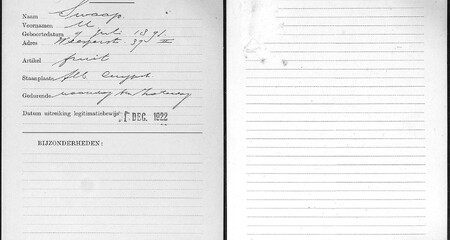 Naam Swaap.
Voornamen M
Geboortedatum 9 juli 1891.
Adres Weesperst 37 III
Artikel fruit
Staanplaats Alb Cuypst
Gedurende maandag t/m Zaterdag
Datum uitreiking legitimatiebewijs DEC. 1922
BIJZONDERHEDEN: